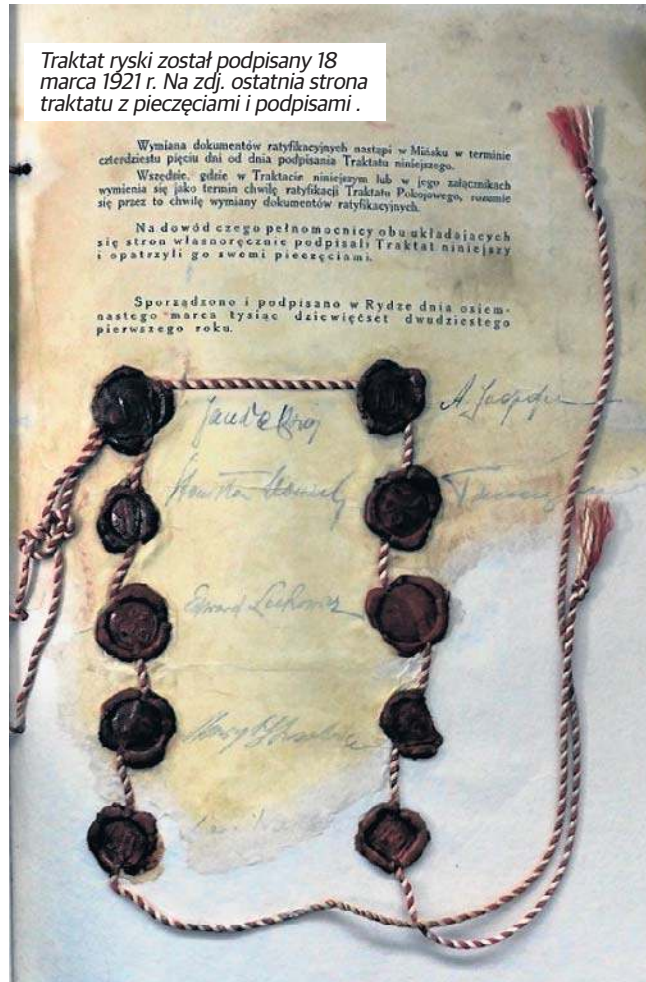 Traktat ryski został podpisany 18
marca 1921 r. Na zdj. ostatnia strona
traktatu z pieczęciami i podpisami .
Wymiana dokumentów ratyfikacyjnych nastąpi w Mińsku w terminie
czterdziestu pięciu dni od dnia podpisania Traktatu niniejszego.
Wszędzie, gdzie w Traktacie niniejszym lub w jego załącznikach
wymienia się jako termin chwilę ratyfikacji Traktatu Pokojowego, rozumie
się przez to chwilę wymiany dokumentów ratyfikacyjnych.
Na dowód czego pełnomocnicy obu układających
się stron własnoręcznie podpisali Traktat niniejszy
i opatrzyli go swemi pieczęciami.
Sporządzono i podpisano w Rydze dnia osiem-
nastego marca tysiąc dziewięćset dwudziestego
pierwszego roku.
Edward Lechowicz